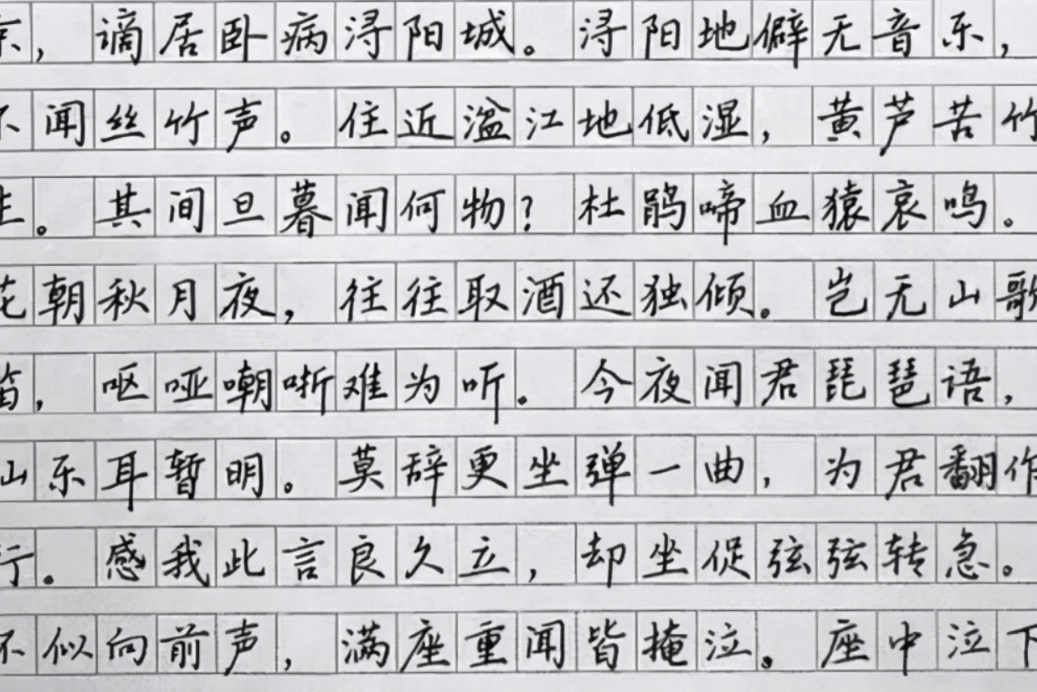 京，谪居卧病浔阳城。浔阳地僻无音乐，
不闻丝竹声。住近湓江地低湿，黄芦苦竹
生。其间旦暮闻何物？杜鹃啼血猿哀鸣。
花朝秋月夜，往往取酒还独倾。岂无山歌
笛，呕哑嘲哳难为听。今夜闻君琵琶语，
仙乐耳暂明。莫辞更坐弹一曲，为君翻作
行。感我此言良久立，却坐促弦弦转急。
不似向前声，满座重闻皆掩泣。座中泣下